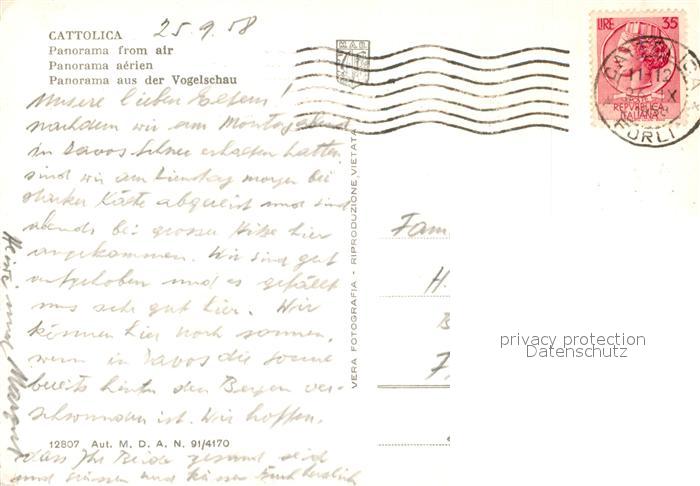 CATTOLICA 25.9.58
Panorama from air
Panorama aérien
Panorama aus der Vogelschau
Unsere lieben Eltern!
nachdem wir am Montagabend
in Davos Schnee erhalten hatten
sind wir am Dienstag morgen bei
starker Kälte abgereist und sind
abends bei grosser Hitze hier
angekommen. Wir sind gut
aufgehoben und es gefällt
uns sehr gut hier. Wir
können hier noch sonnen,
wenn in Davos die Sonne
bereits hinter den Bergen ver-
schwunden ist. Wir hoffen,
12807 Aut. M. D. A. N. 91/4170
dass Ihr Beide gesund seid
und grüssen und küssen Euch herzlich
und Margrit
VERA FOTOGRAFIA - RIPRODUZIONE VIETATA
M.A.R.
LIRE 35
REPVBBLICA
ITALIANA
11-12
FORLI
Fam
H.
B
F
privacy protection
Datenschutz